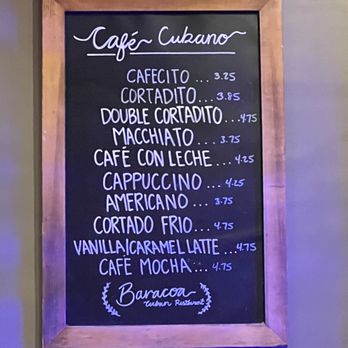 Café Cubano
CAFECITO ... 3.25
CORTADITO ... 3.85
DOUBLE CORTADITO ... 4.75
MACCHIATO ... 3.75
CAFÉ CON LECHE ... 4.25
CAPPUCCINO ... 4.25
AMERICANO ... 3.75
CORTADO FRIO ... 4.75
VANILLA/CARAMEL LATTE ... 4.75
CAFÉ MOCHA ... 4.75
Baracoa
Cuban Restaurant